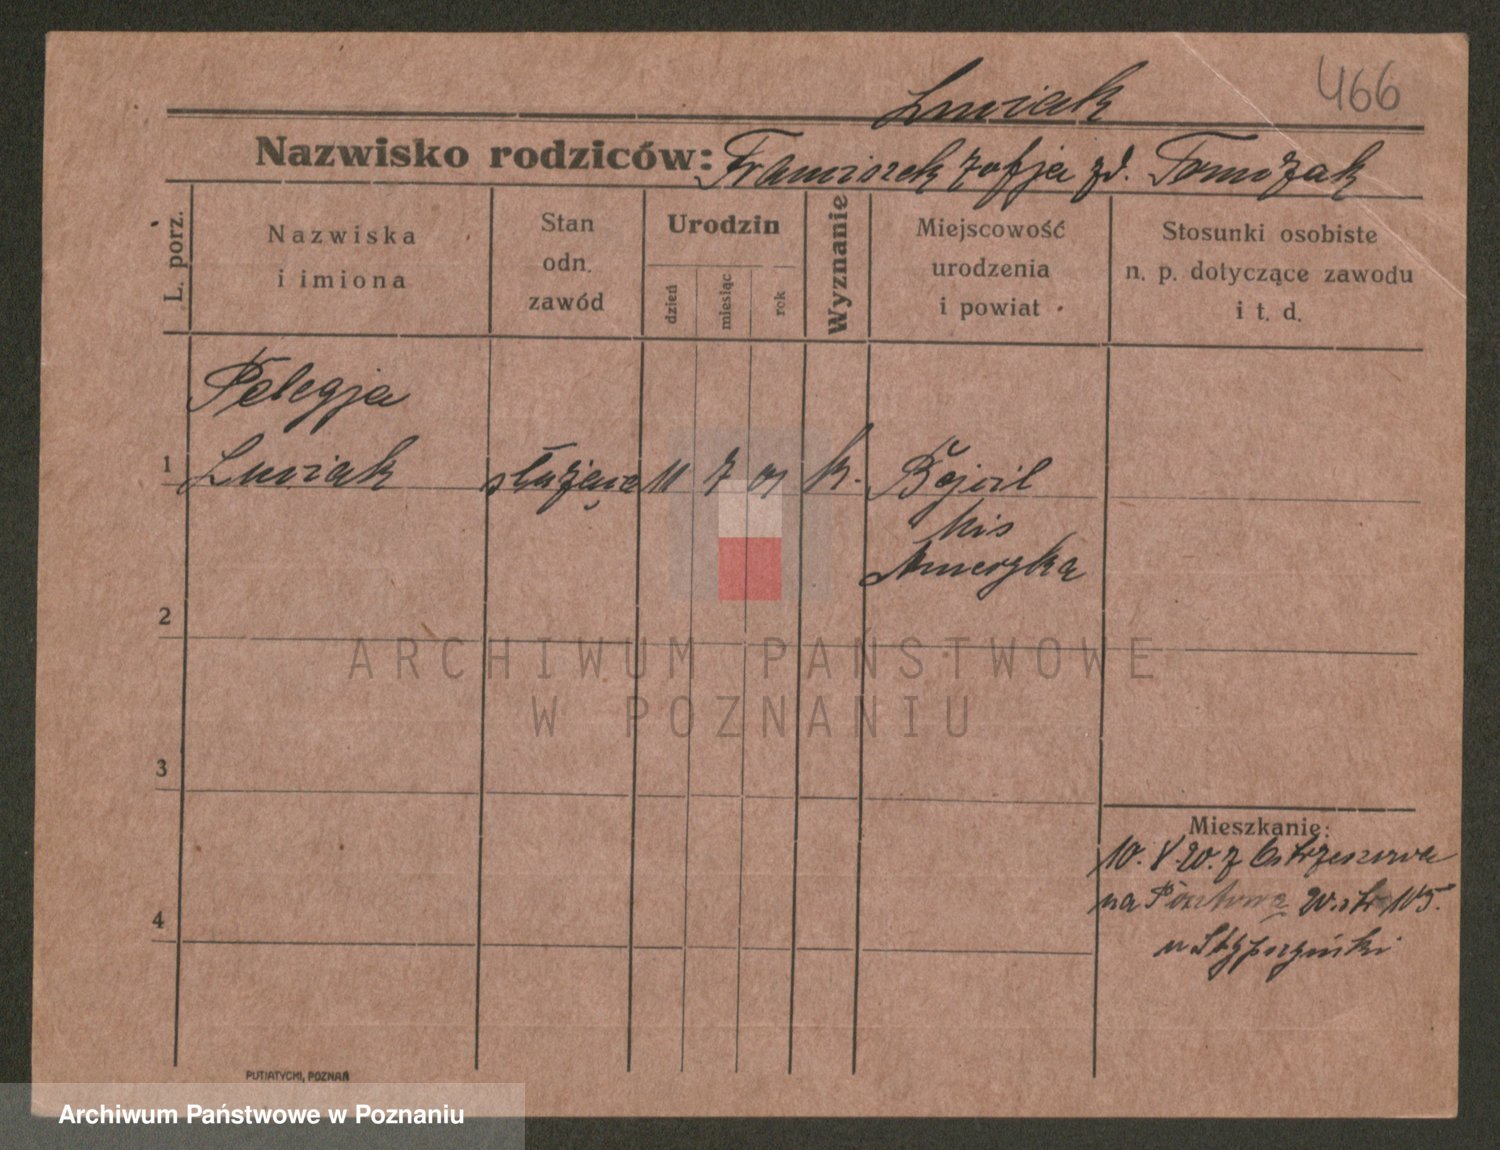 466
Luviak
Nazwisko rodziców: Franciszek Zofja zd. Tomczak
L. porz.
Nazwiska
i imiona
Stan
odn.
zawód
Urodzin
dzień
miesiąc
rok
Wyznanie
Miejscowość
urodzenia
i powiat
Stosunki osobiste
n. p. dotyczące zawodu
i t. d.
Pelegja
1 Luviak służąca 11 7 01 k.
Ameryka
2
ARCHIWUM PAŃSTWOWE
W POZNANIU
3
Mieszkanie:
10. V. 20. z Ostrzeszowa
4 na Pocztową 20. str 105.
u Stypczyński
PUTIATYCKI, POZNAŃ
Archiwum Państwowe w Poznaniu